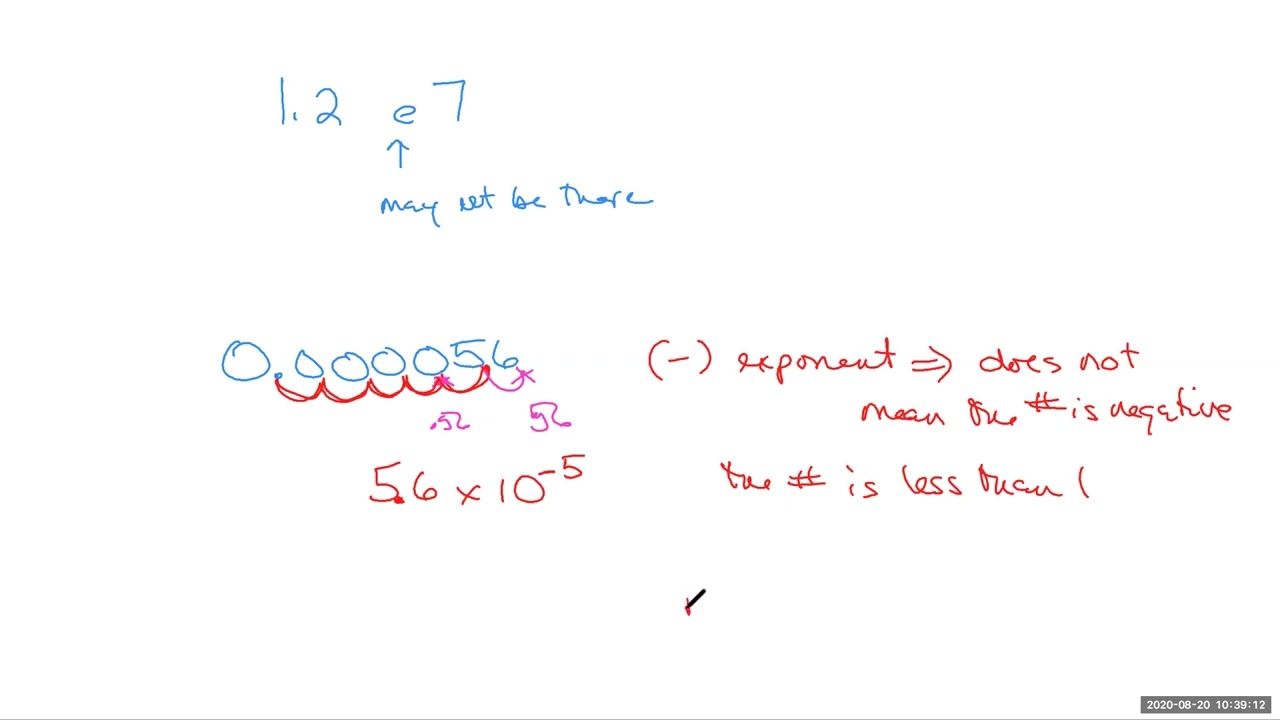 1.2 e 7
↑
may not be there
0.000056
(-) exponent ⇒ does not
mean the # is negative
.56
56
5.6 × 10⁻⁵
the # is less than 1
2020-08-20 10:39:12